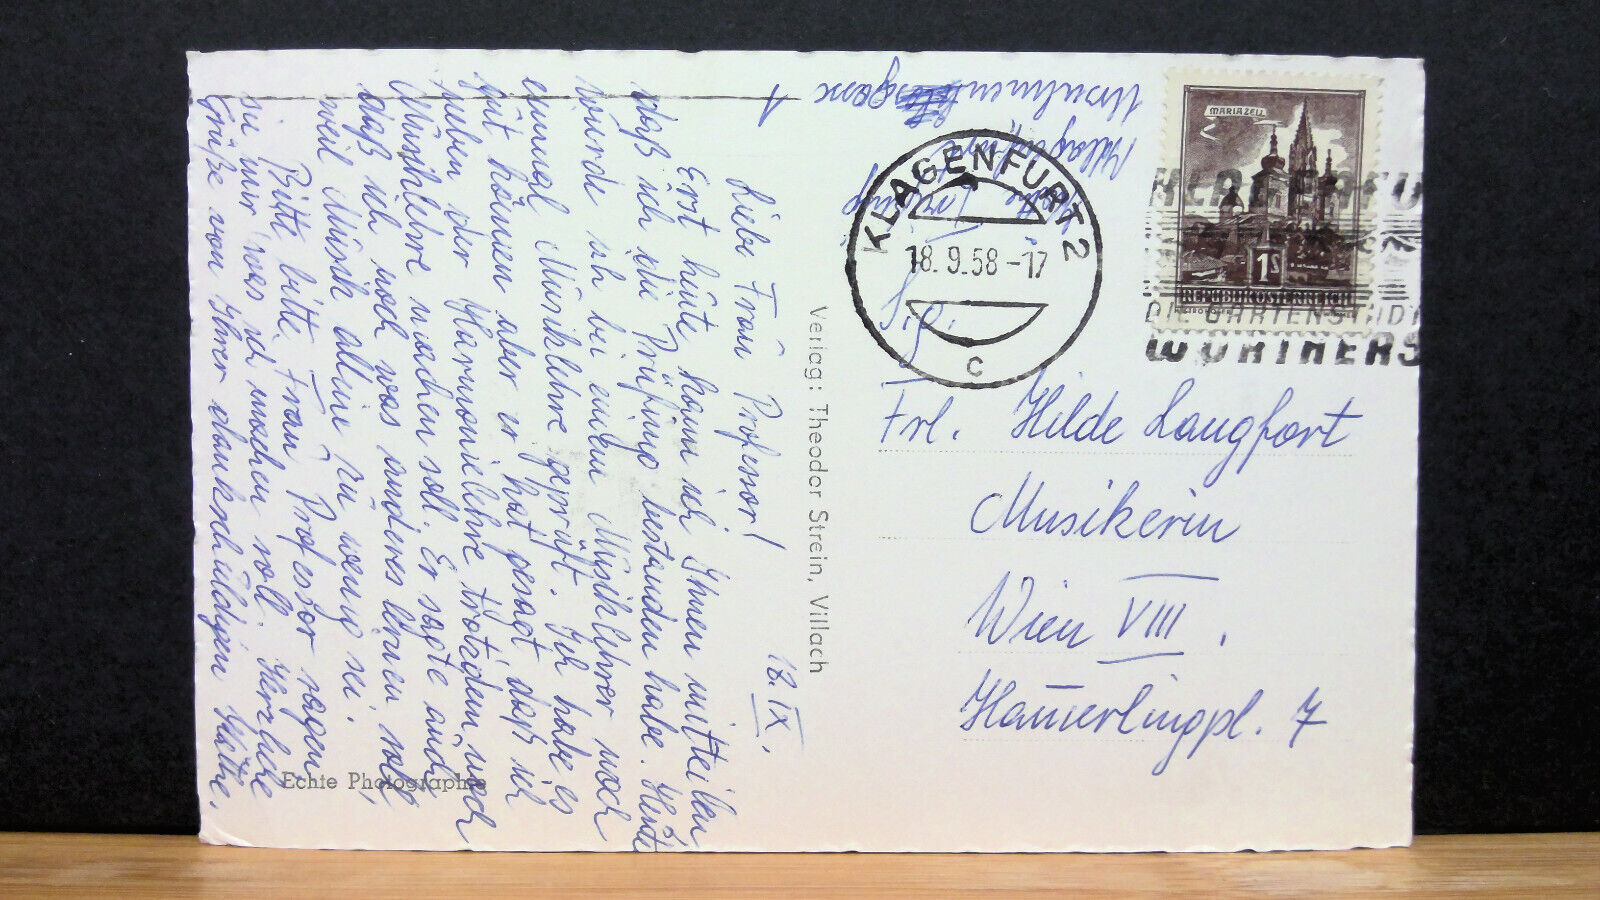 18. IX.
Liebe Frau Professor!
Erst heute kann ich Ihnen mitteilen
daß ich die Prüfung bestanden habe. Heute
wurde ich bei einem Musiklehrer noch
einmal Musiklehre geprüft. Ich habe es
gut können aber er hat gesagt, daß ich
neben der Harmonielehre trotzdem noch
Musiklehre machen soll. Er sagte auch
daß ich noch was anderes lernen soll,
weil Musik allein zu wenig sei.
Bitte, bitte, Frau Professor sagen
sie mir was ich machen soll. Herzliche
Grüße von Ihrer dankschuldigen Käthe.
Echte Photographie
Verlag: Theodor Strein, Villach
Klagenfurt,
Ursulinengasse
KLAGENFURT 2
18.9.58-17
c
MARIAZELL
1S
REPUBLIK ÖSTERREICH
KLAGENFU
DIE GARTENSTADT
WÖRTHERS
Frl. Hilde Langfort
Musikerin
Wien VIII.
Hamerlingpl. 7